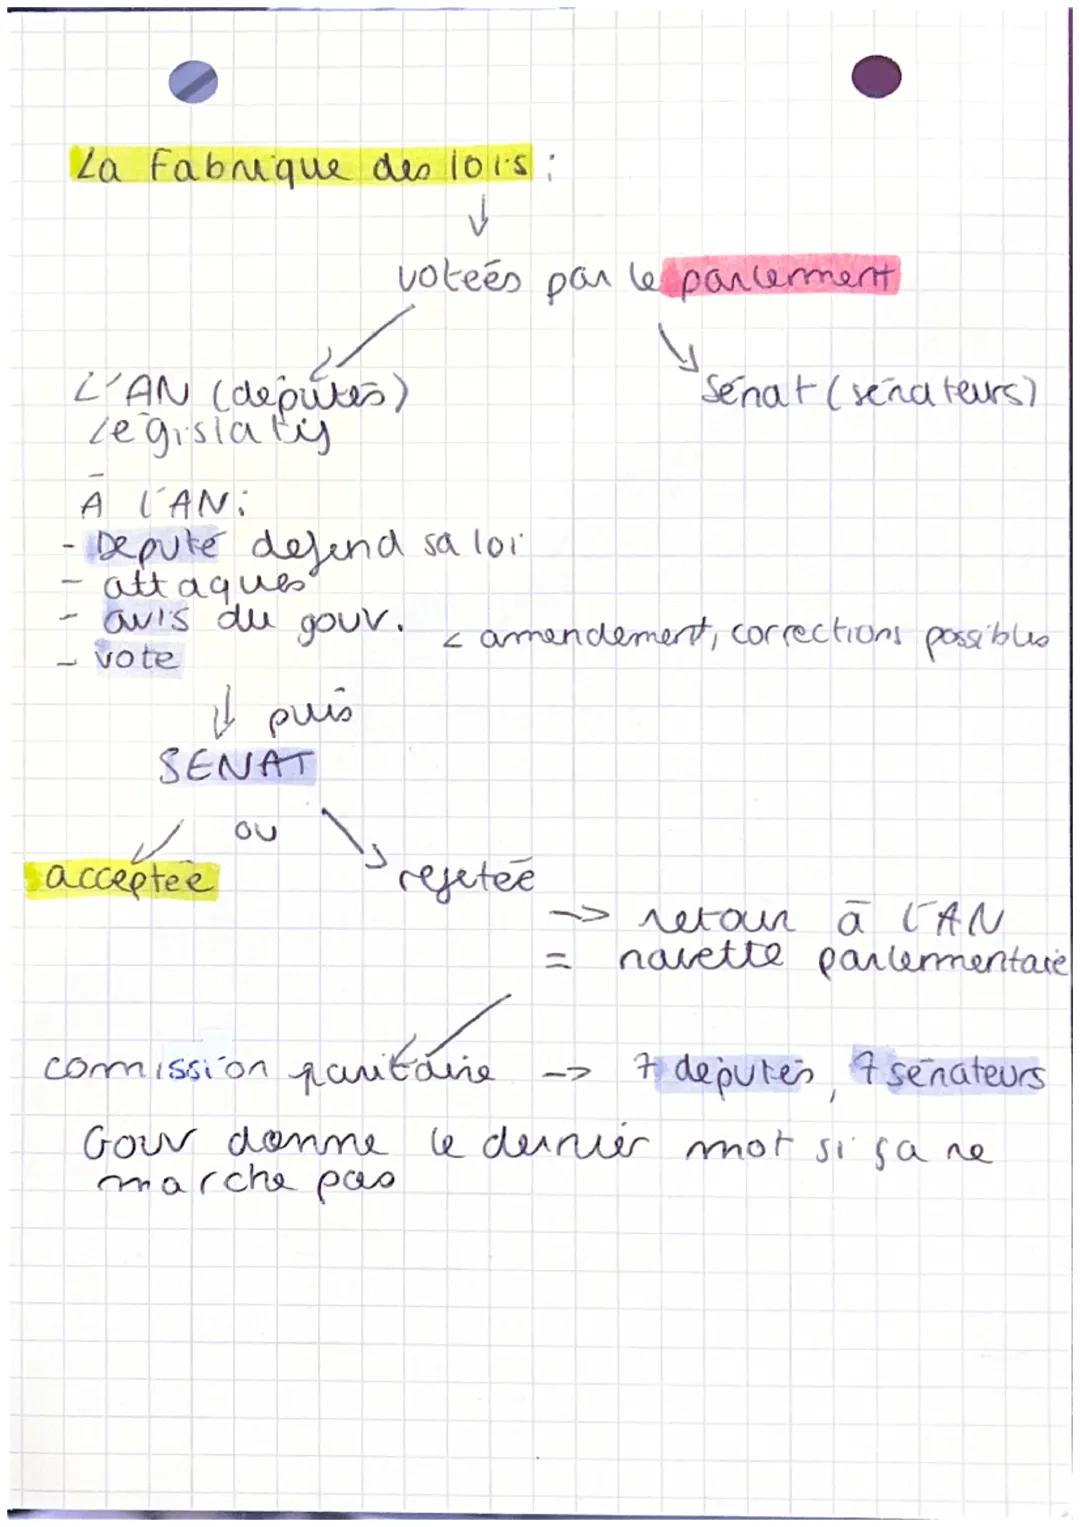 La Fabrique des lois :
↓
voteés par le parlerment
L'AN (députés)
Sénat (sénateurs)
législatif
À l'AN :
- Député défend sa loi
- attaques
- avis du gouv.
< amendement, corrections possibles
- vote
↓ puis
SENAT
ou
acceptée
rejetée
-> retour à l'AN
= navette parlermentaire
comission paritaire -> 7 députés, 7 sénateurs
Gouv donne le dernier mot si ça ne
marche pas